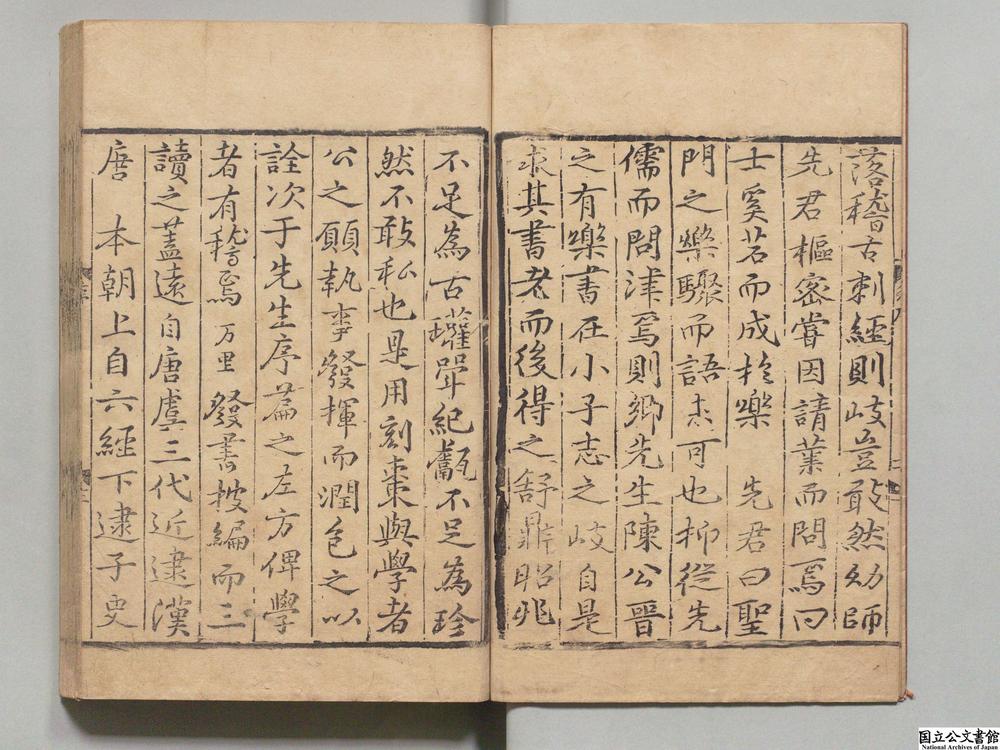 落稽古刺經則岐豈敢然幼師
先君樞密嘗因請業而問焉曰
士奚若而成於樂　先君曰聖
門之樂驟而語未可也抑從先
儒而問津焉則鄉先生陳公晉
之有樂書在小子志之岐自是
求其書老而後得之舒鼎昭兆
不足為古瓘斝紀甗不足為珍
然不敢私也是用刻棗與學者
公之願執事發揮而潤色之以
詮次于先生序篇之左方俾學
者有稽焉万里發書披編而三
讀之蓋遠自唐虞三代近逮漢
唐　本朝上自六經下逮子史
国立公文書館
National Archives of Japan